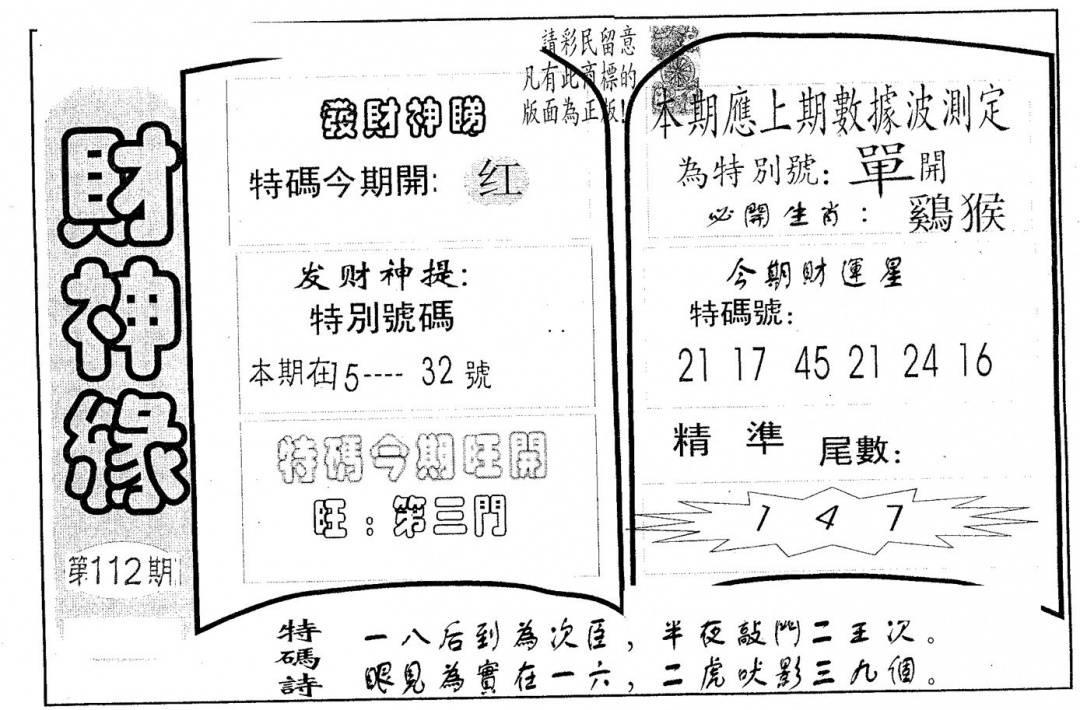 財神緣
第112期
請彩民留意
凡有此商標的
版面為正版!
發財神睇
特碼今期開: 红
发财神提:
特別號碼
本期在15----32號
特碼今期旺開
旺:第三門
本期應上期數據波測定
為特別號:單開
必開生肖:鷄猴
今期財運星
特碼號:
21 17 45 21 24 16
精準 尾數:
1 4 7
特碼詩
一八后到為次臣,半夜敲門二王次。
眼見為實在一六,二虎吠影三九個。